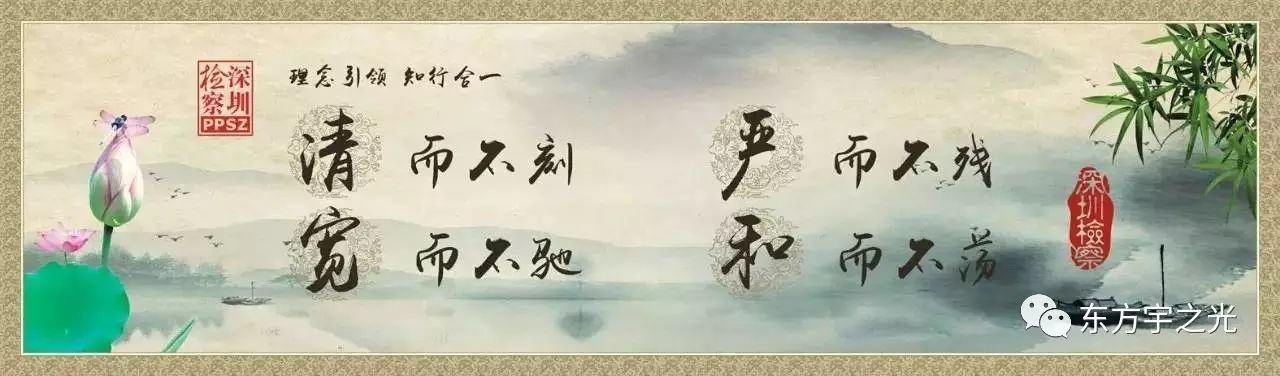 深圳
检察
PPSZ
理念引领 知行合一
清而不刻
严而不残
宽而不驰
和而不荡
深圳檢察
东方宇之光